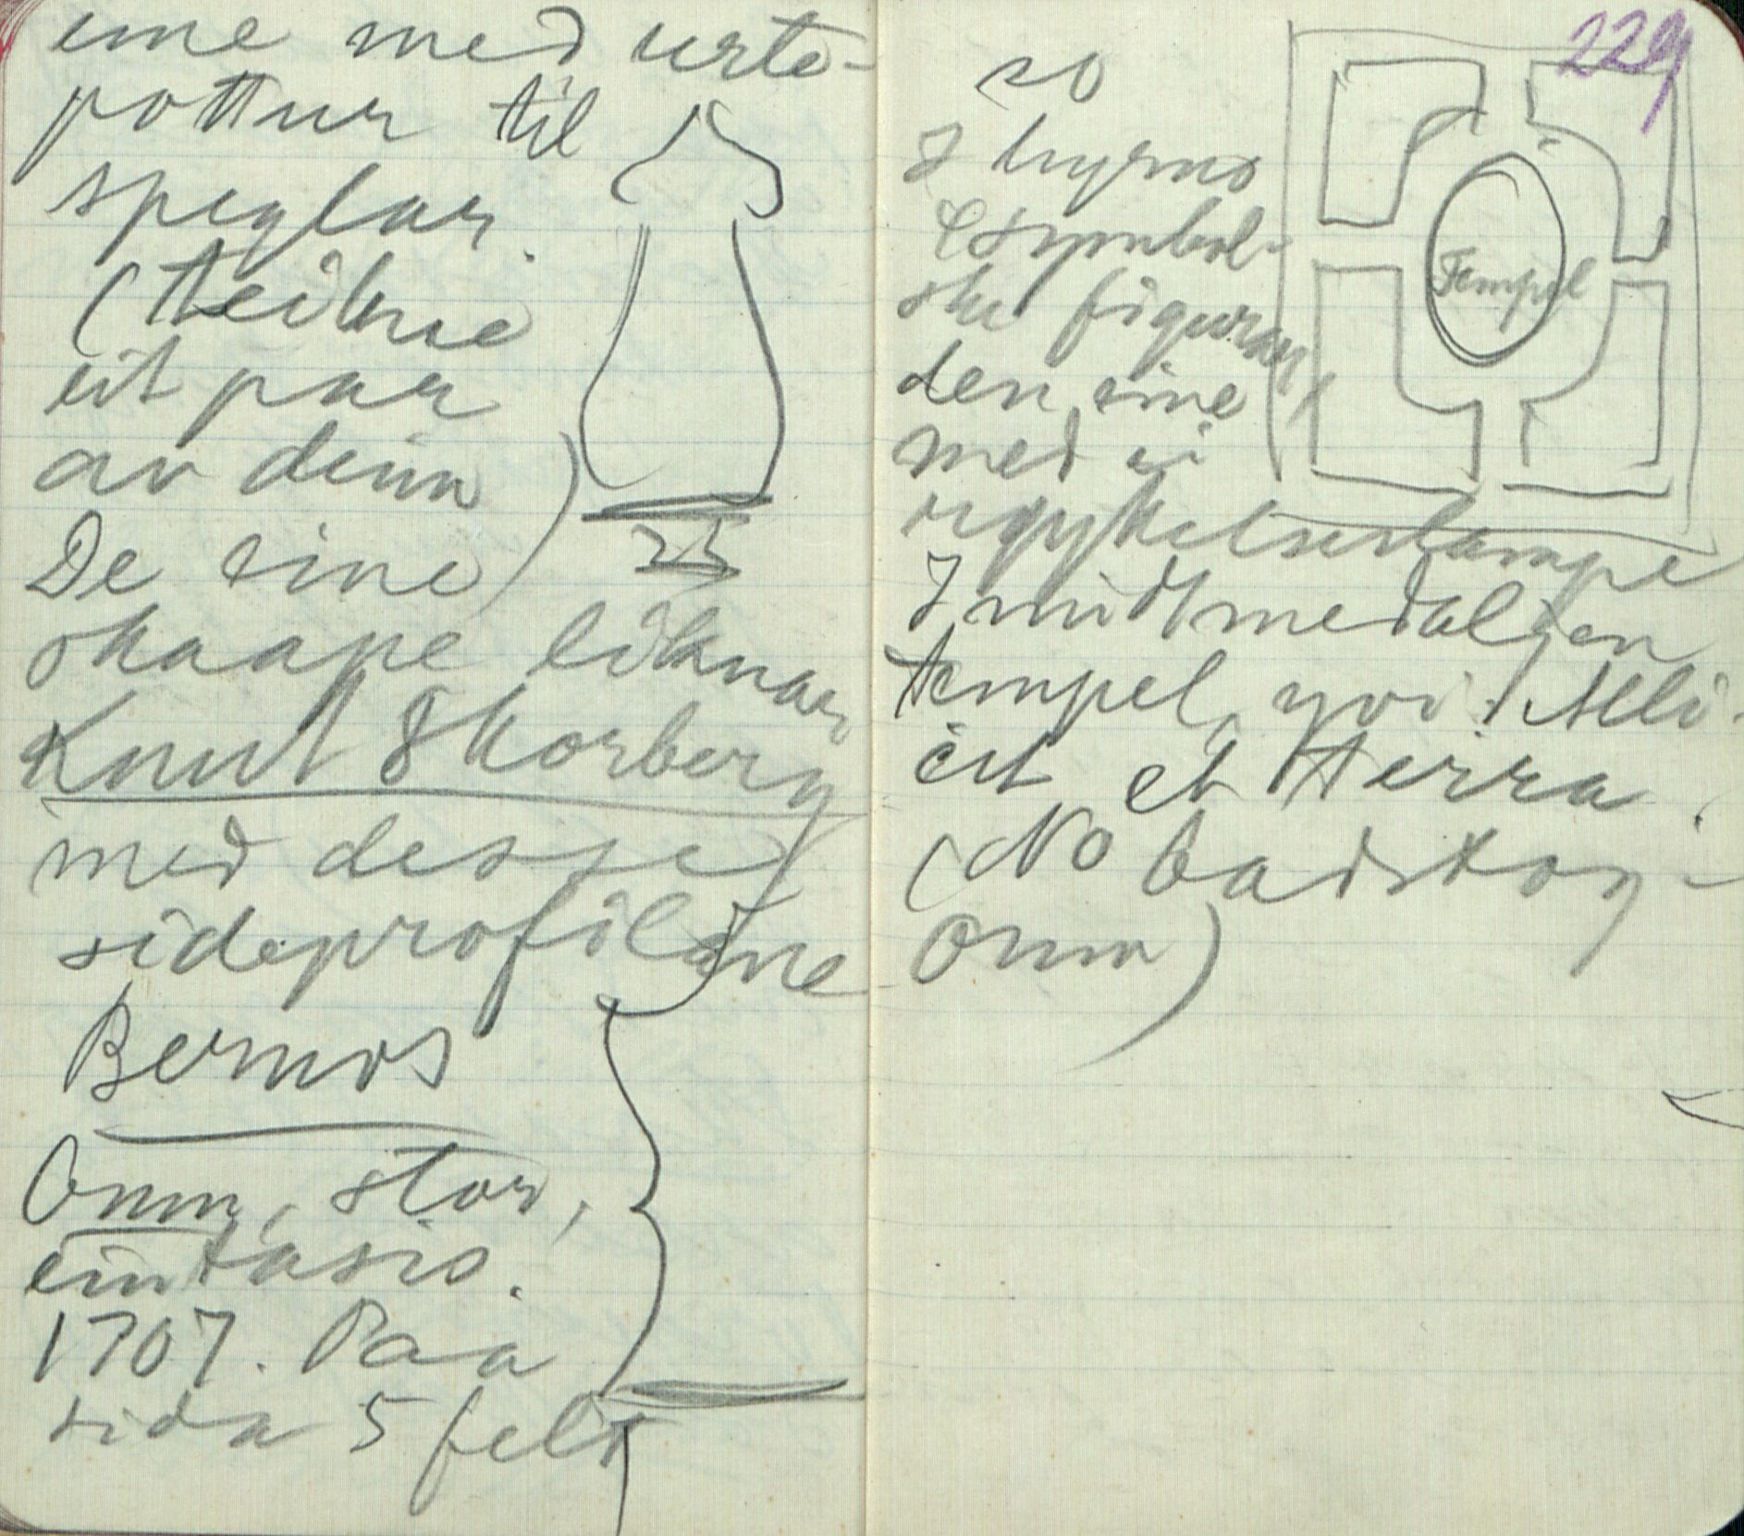 eine med urte-
pottur til
speglar.
(Teikne
eit par
av deim)
De eine
skaape liknar
Knut Skorberg
med desse
sideprofilane
Bernos
Omn, stor,
ein tasio.
1707. Paa
sida 5 felt
229
so
I hyrno
symbol-
ske figurar
den eine
med ei
lampe
I midtmedaljen
tempel, yvi:
et Terra.
(No badstog-
omn)
Tempel